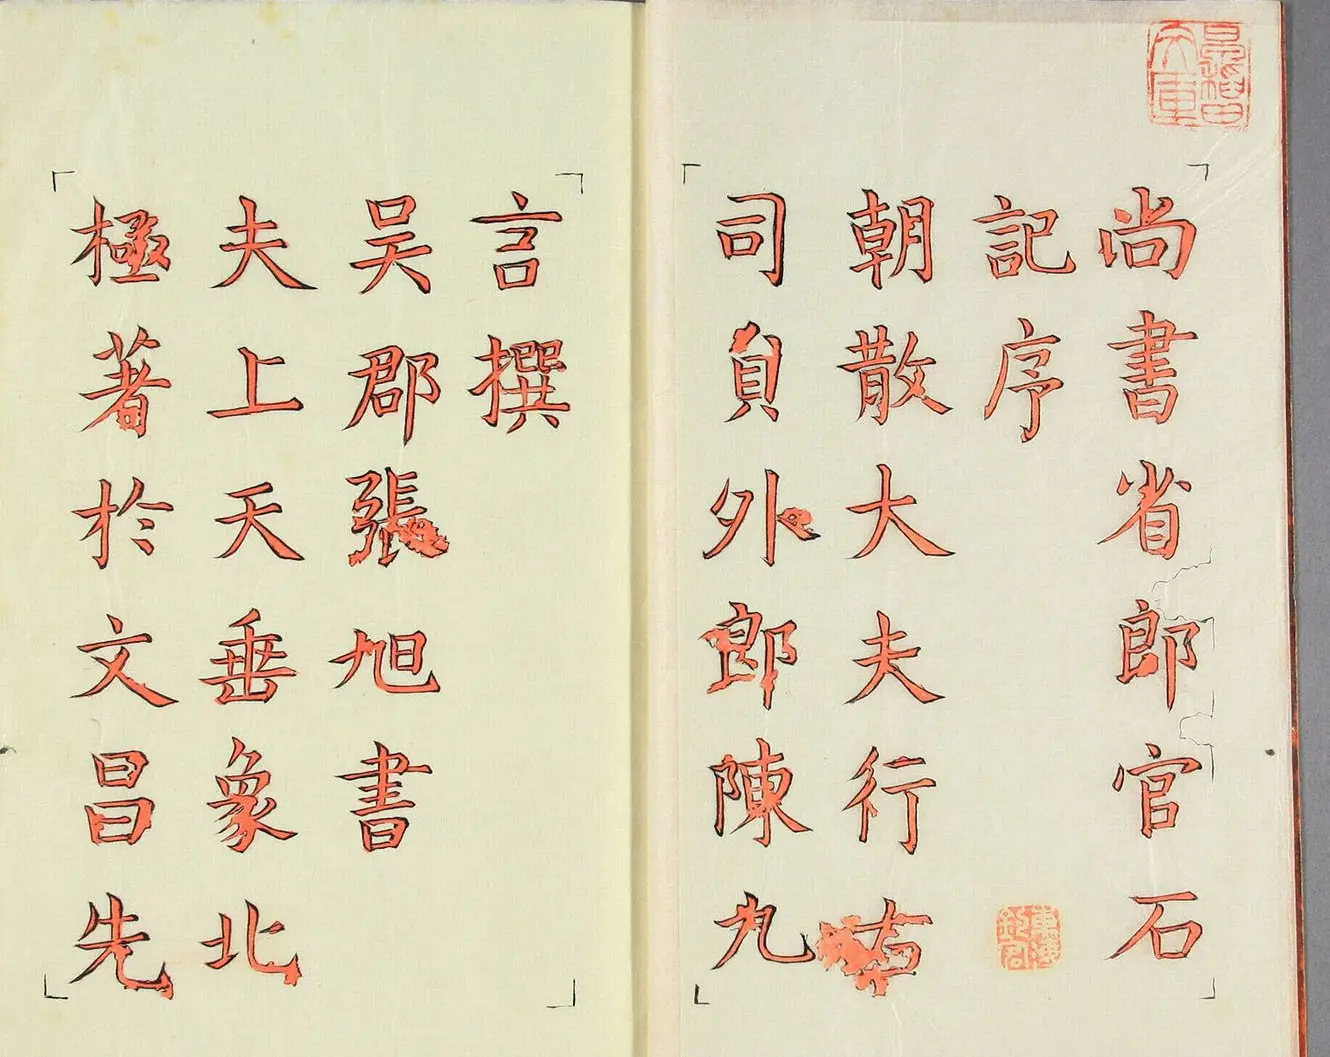 尚書省郎官石
記序
朝散大夫行右
司員外郎陳九
言撰
吳郡張旭書
夫上天垂象北
極著於文昌先